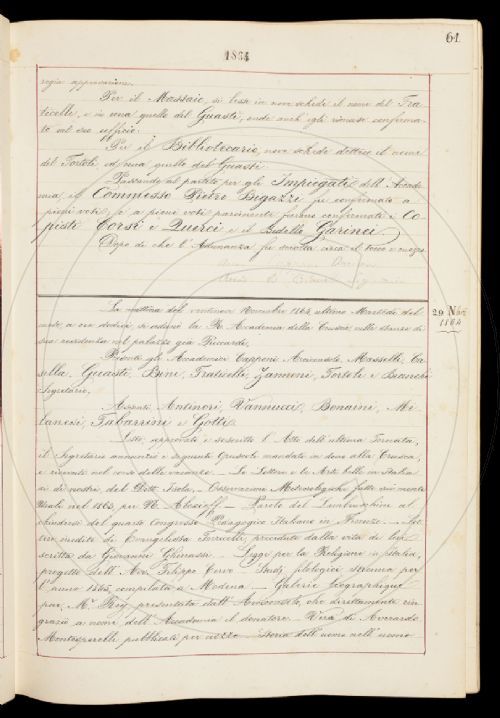 61
1864
regia approvazione.
Per il Massaio, si lesse in nove schede il nome del Fra-
ticelli, e in una quello del Guasti, onde anch'egli rimase conferma-
to nel suo ufficio.
Per il Bibliotecario, nove schede dettero il nome
del Tortoli ed una quello del Guasti.
Passando al partito per gli Impiegati dell'Accade-
mia, il Commesso Pietro Bigazzi fu confermato a
pieni voti, e a pieni voti parimente furono confermati i Co-
pisti Corsi e Querci e il Bidello Garinei.
Dopo di che l'Adunanza fu sciolta circa il tocco e mezzo.
La mattina del ventinove Novembre 1864, ultimo Martedì del
mese, a ore dodici, si adunò la R. Accademia della Crusca nelle stanze di
sua residenza nel palazzo già Riccardi.
Presenti gli Accademici Capponi Arciconsolo, Masselli, Ca-
sella, Guasti, Bini, Fraticelli, Zannoni, Tortoli e Bianchi
Segretario.
Assenti Antinori, Vannucci, Bonaini, Mi-
lanesi, Tabarrini e Gotti.
Letto, approvato e soscritto l'Atto dell'ultima Tornata,
il Segretario annunzia i seguenti Opuscoli mandati in dono alla Crusca,
e ricevuti nel corso delle vacanze. – Le Lettere e le Arti belle in Italia
ai dì nostri, del Dott. Isola. – Osservazioni Meteorologiche fatte
nel 1863 per – Parole del Lambruschini al
chiudersi del quarto Congresso Pedagogico Italiano in Firenze. – Let-
tere inedite di Evangelista Torricelli precedute dalla vita di lui
scritta da Giovanni Ghinassi. – Legge per la Religione in Italia,
progetto dell'Avv. Filippo Curvo. – Studj filologici strenna per
l'anno 1865, compilata a Modena. – Galerie Geographique
par Mr. presentata dall'Arciconsolo, che direttamente rin-
graziò a nome dell'Accademia il donatore. – Vita di Averardo
Montesperelli pubblicata per nozze. – Storia dell'uomo nell'uomo
29 Nov.
1864